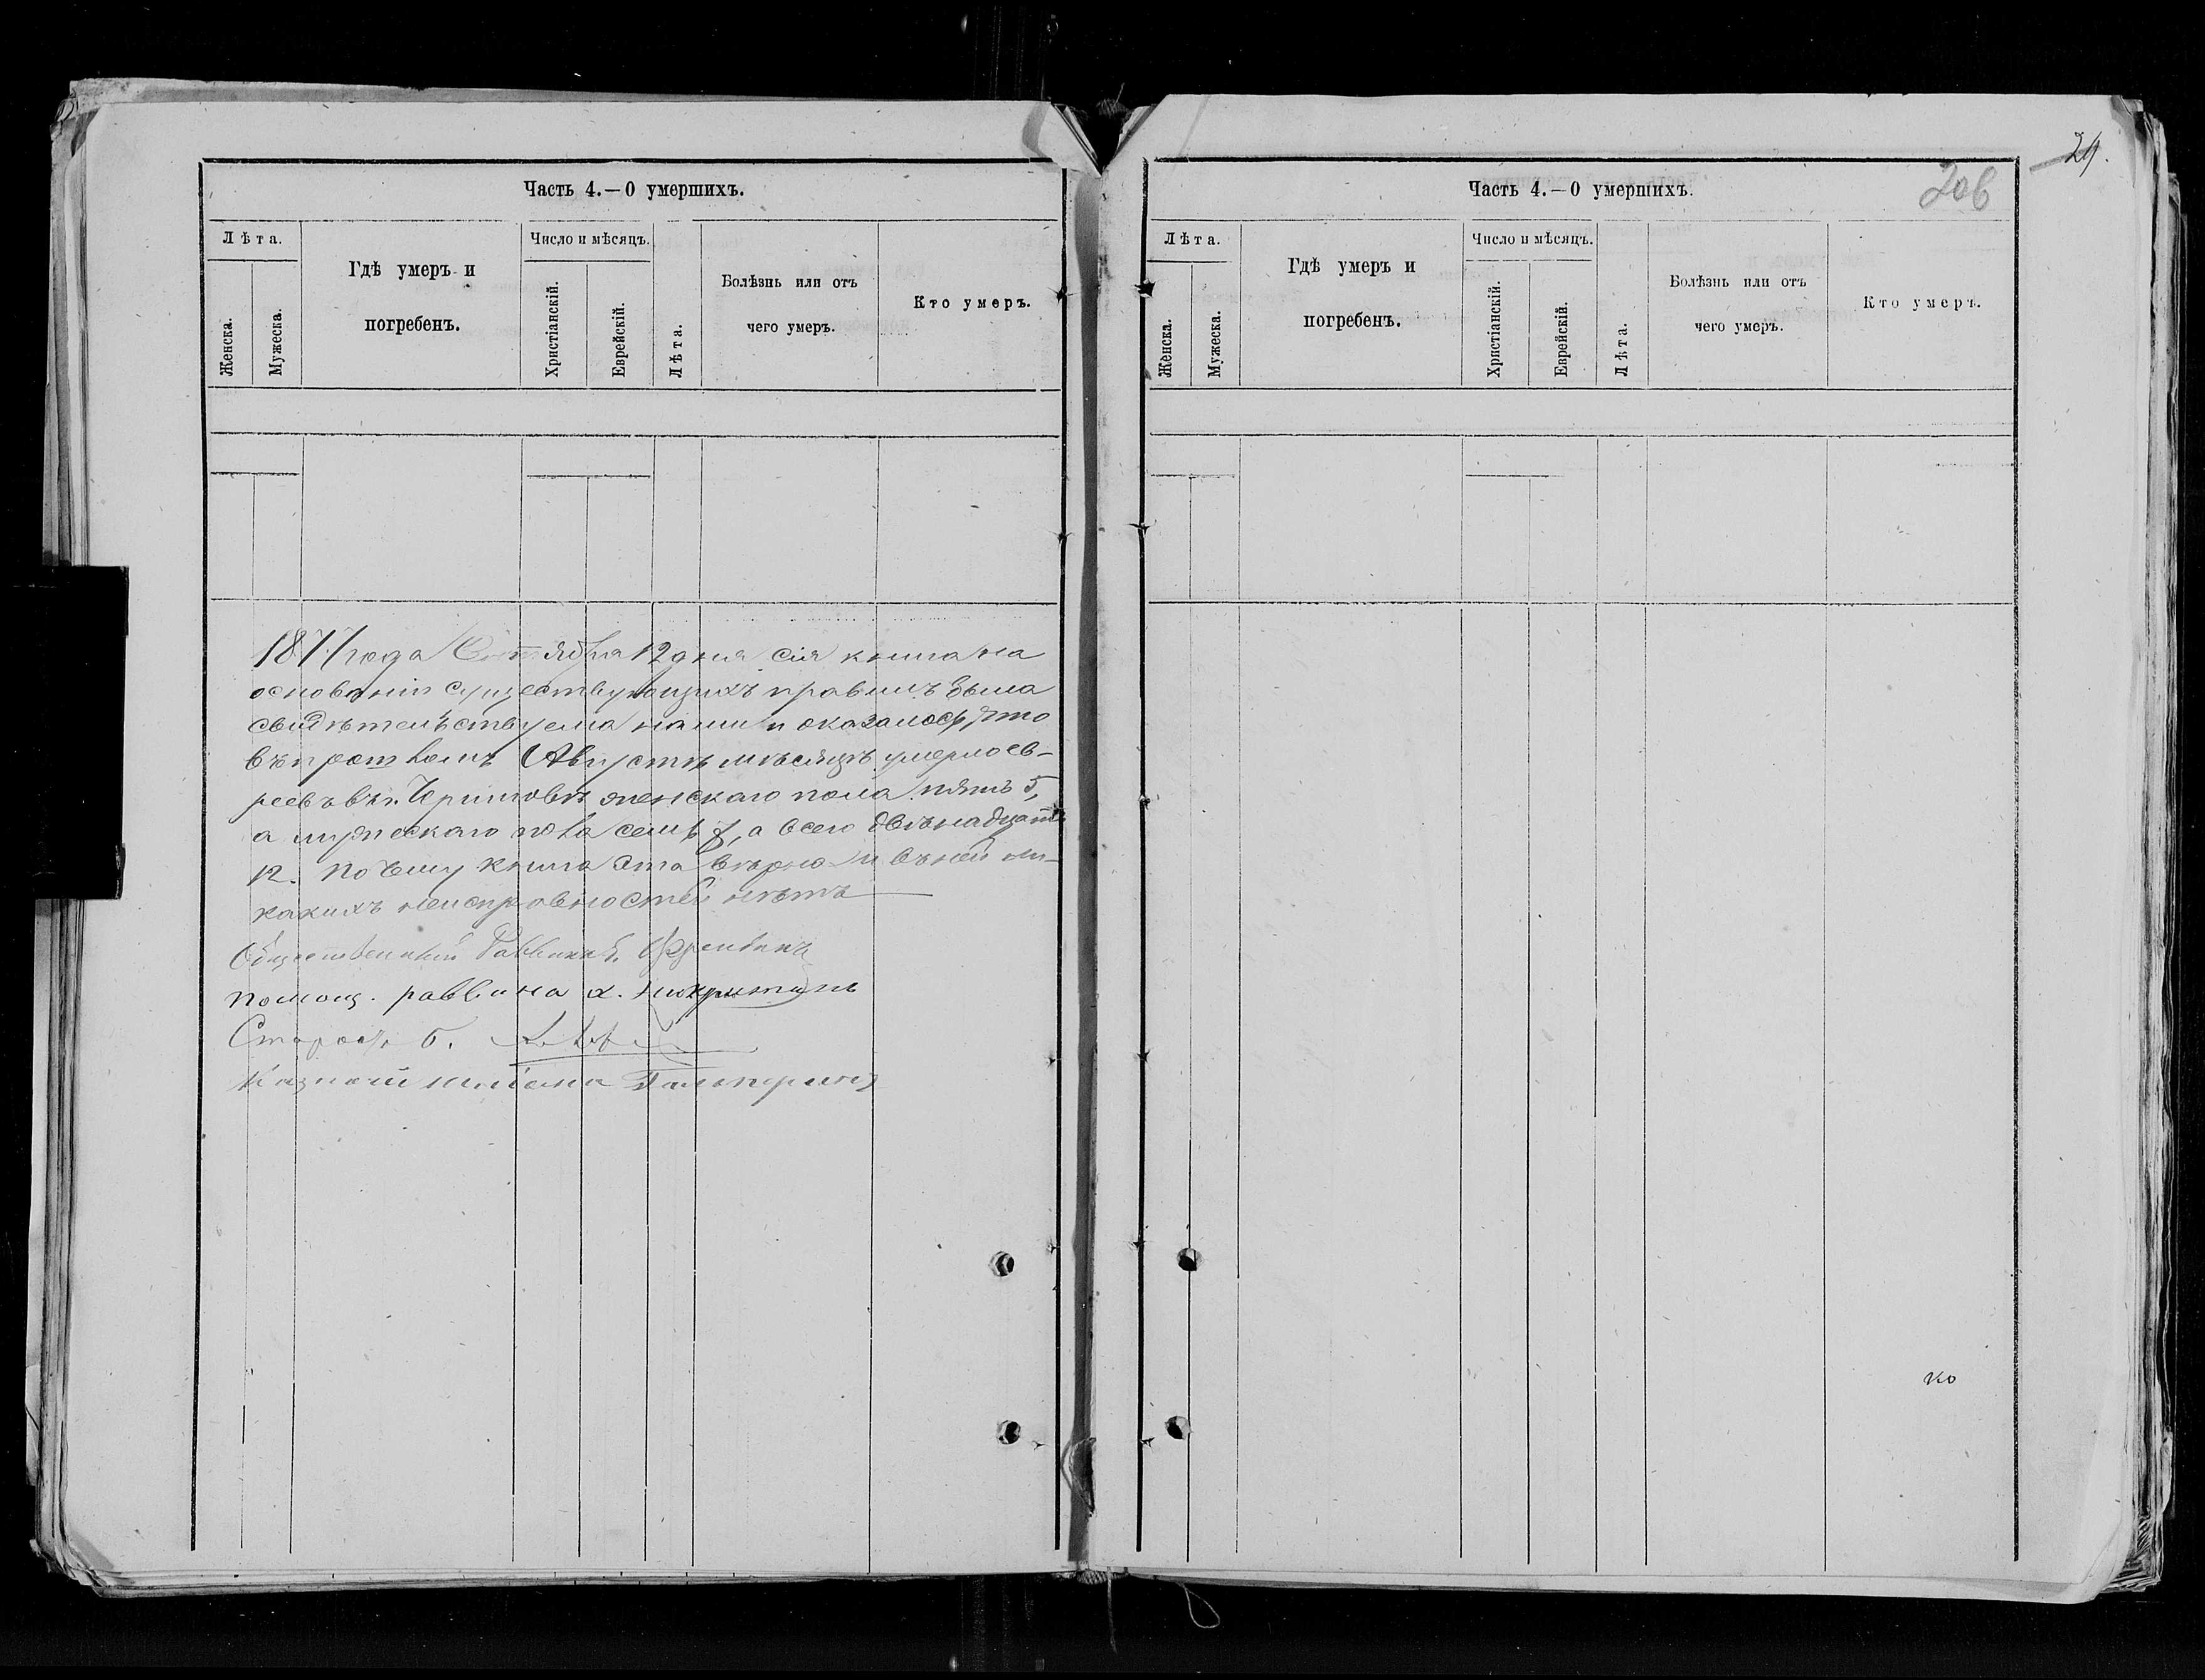 Часть 4.—О умершихъ.
Лѣта.
Женска.
Мужеска.
Гдѣ умеръ и
погребенъ.
Число и мѣсяцъ.
Христіанскій.
Еврейскій.
Лѣта.
Болѣзнь или отъ
чего умеръ.
Кто умеръ.
1877 года Сентября 12 дня сія книга на
основаніи существующихъ правилъ была
свидѣтельствуема нами и оказалось, что
въ прошломъ Августѣ мѣсяцѣ умерло ев-
реевъ въ г. Черниговѣ женскаго пола пять 5,
а мужескаго пола семь 7, а всего двѣнадцать
12. По чему книга эта вѣрна и въ ней ни-
какихъ неисправностей нѣтъ
Общественный Раввинъ
Помощ. раввина
Староста Б.
Казначей Гальперинъ
29.
206
Часть 4.—О умершихъ.
Лѣта.
Женска.
Мужеска.
Гдѣ умеръ и
погребенъ.
Число и мѣсяцъ.
Христіанскій.
Еврейскій.
Лѣта.
Болѣзнь или отъ
чего умеръ.
Кто умеръ.
ко